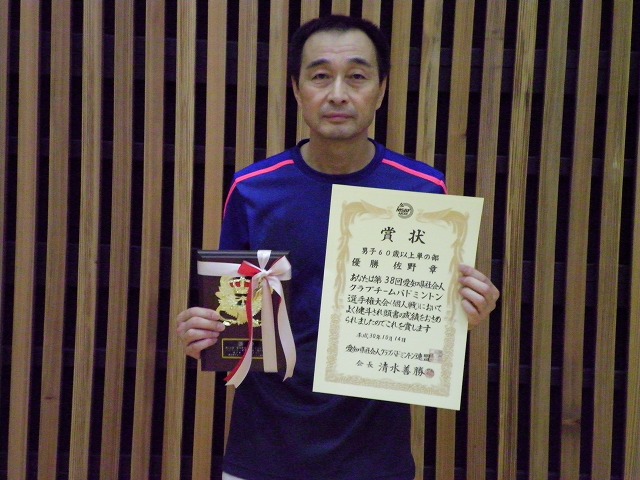 賞状
男子60歳以上単の部
優勝 佐野 章
あなたは第38回愛知県社会人
クラブチームバドミントン
選手権大会(個人戦)において
よく健斗され頭書の成績をおさめ
られましたのでこれを賞します
平成30年10月14日
愛知県社会人クラブバドミントン連盟
会長 清水善勝